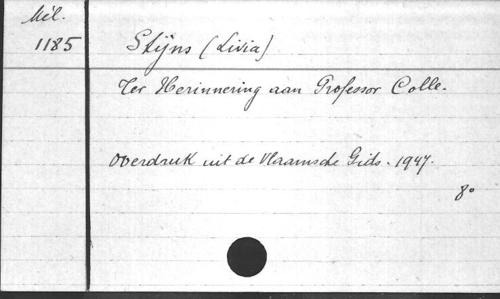 Mél.
1185
Stijns (Livia)
Ter Herinnering aan Professor Colle.
Overdruk uit de Vlaamsche Gids. 1947.
8°